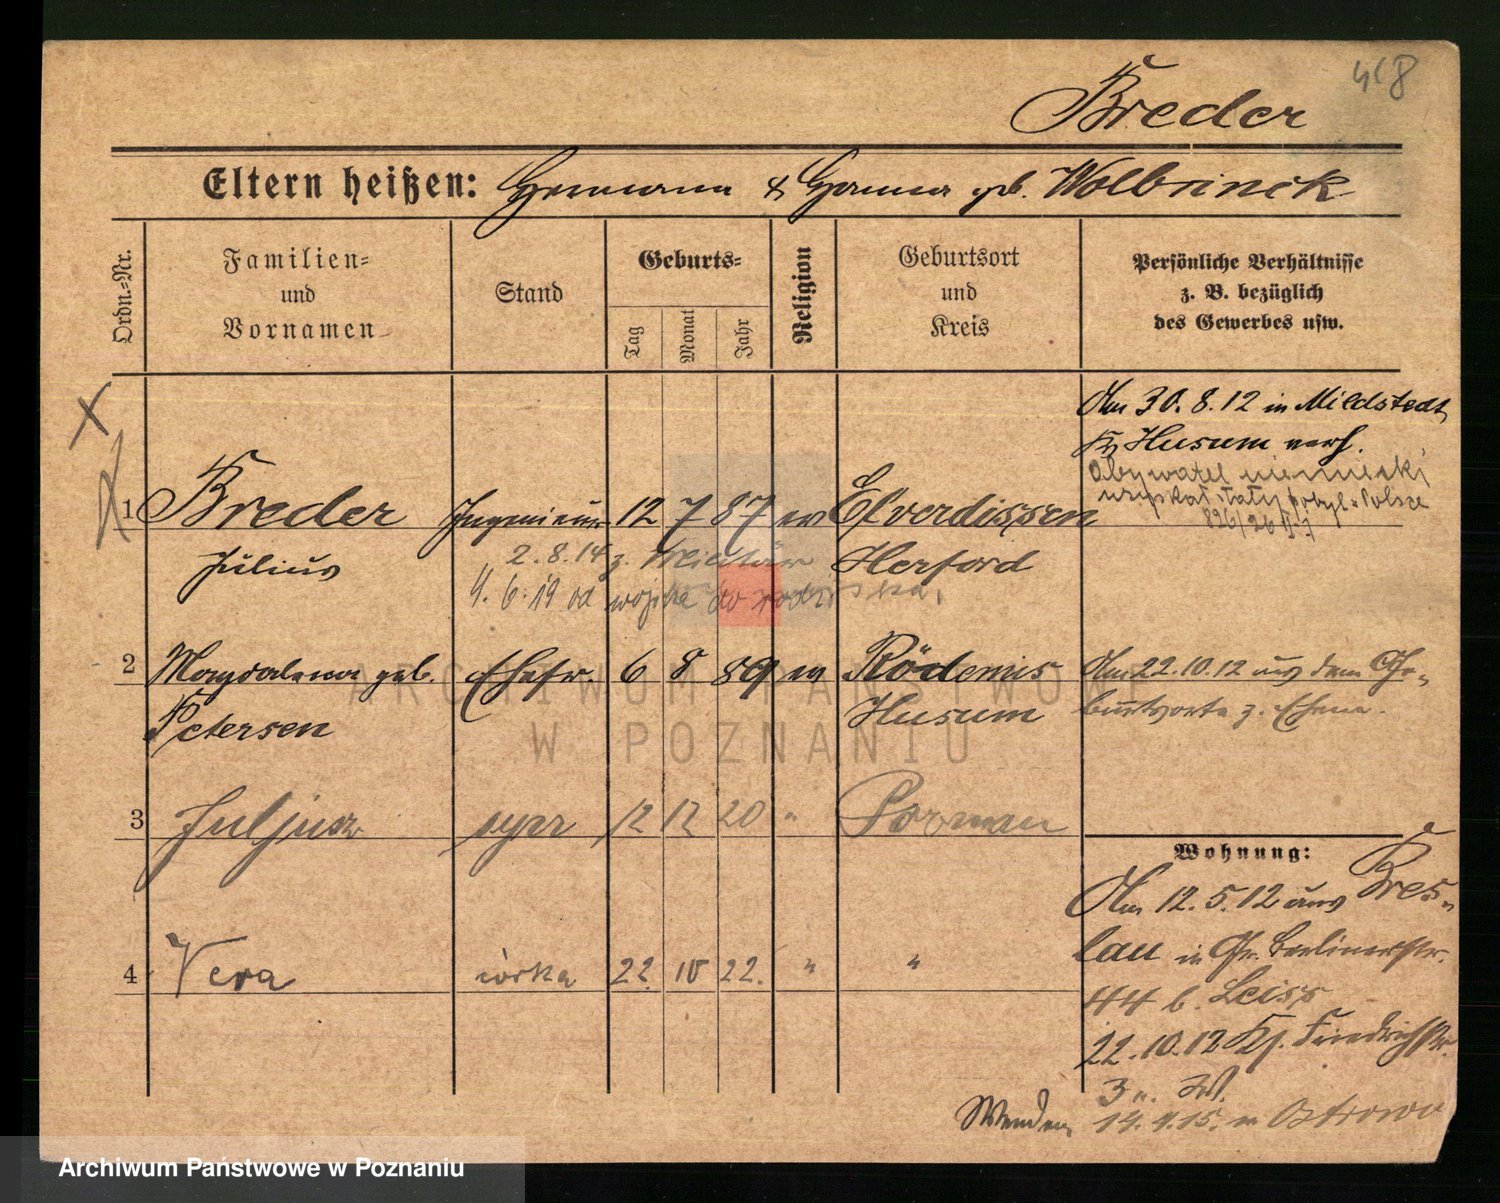 418
Breder
Eltern heißen: Hermann & Hanna geb. Wolbrinck
Ordn.-Nr.
Familien-
und
Vornamen
Stand
Geburts-
Tag
Monat
Jahr
Religion
Geburtsort
und
Kreis
Persönliche Verhältnisse
z. B. bezüglich
des Gewerbes usw.
Am 30.8.12 in Mildstedt,
Kr Husum verh.
Obywatel niemiecki
uzyskał stały pobyt w Polsce
826/26
X
1 Breder Ingenieur 12 7 87 ev Elverdissen
Julius Herford
2.8.14 z. Militär
4.6.19 od wojska do
2 Magdalena geb. Ehefr. 6 8 89 ev Rödemis
Petersen Husum
Am 22.10.12 aus dem Ge-
burtsorte z. Ehem.
3 Juljusz syn 12 12 20 " Poznan
4 Vera córka 22 10 22. " "
Wohnung:
Am 12.5.12 aus Bres-
lau in Gr. Berlinerstr.
44 b. Leiss
22.10.12 Kl. Friedrichstr.
3 II. W.
14.4.15. Ostrowo
Wenden
ARCHIWUM PAŃSTWOWE
W POZNANIU
Archiwum Państwowe w Poznaniu